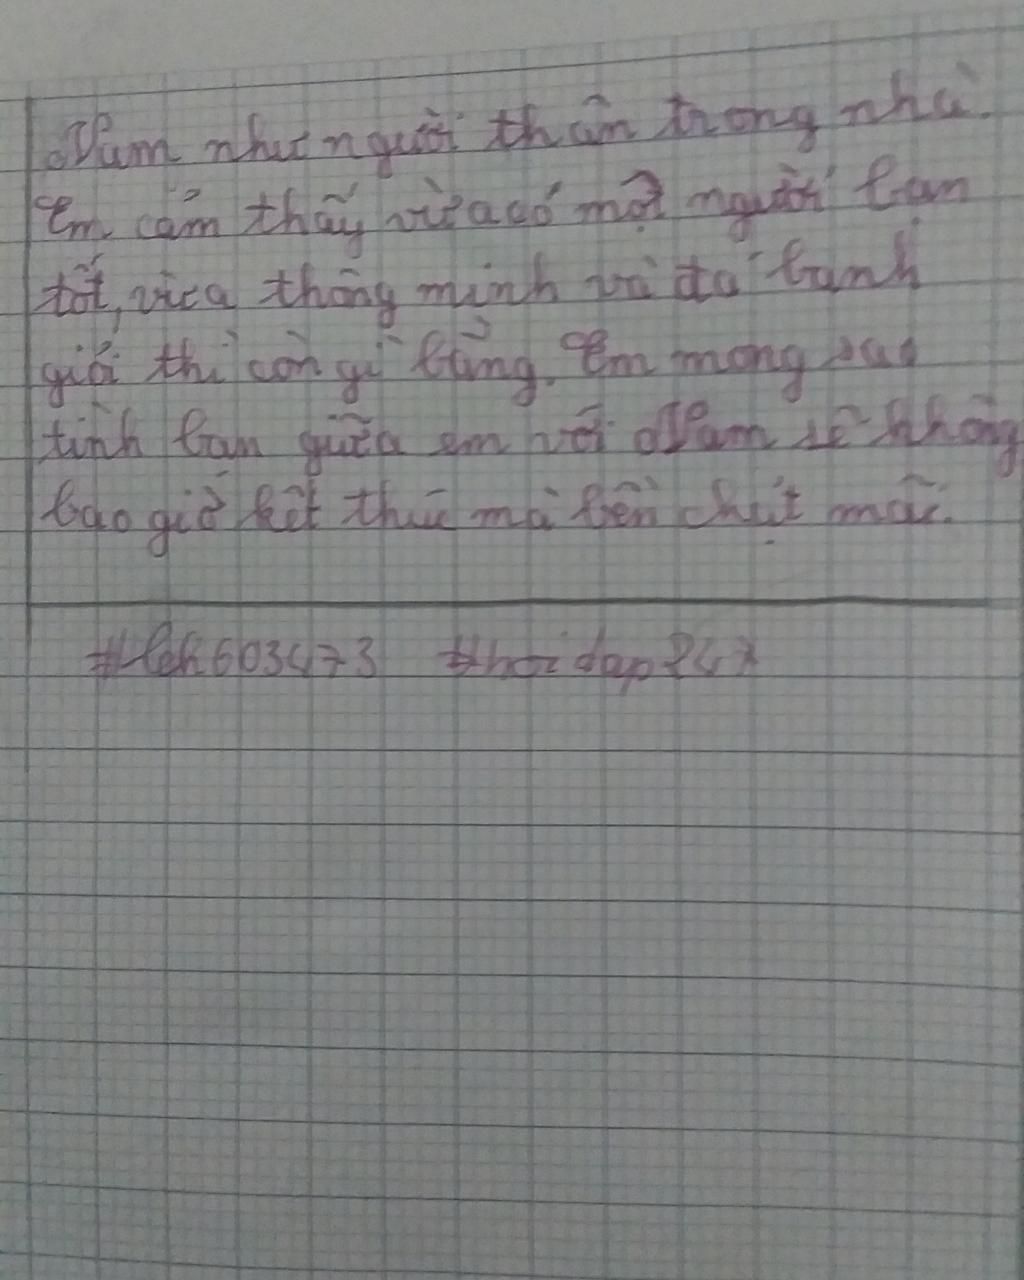 Nam như người thân trong nhà.
Em cảm thấy vừa có một người bạn
tốt, vừa thông minh và đá banh
giỏi thì còn gì bằng. Em mong sao
tình bạn giữa em với Nam sẽ không
bao giờ kết thúc mà bền chặt mãi.
#lek603473 #hoidap247